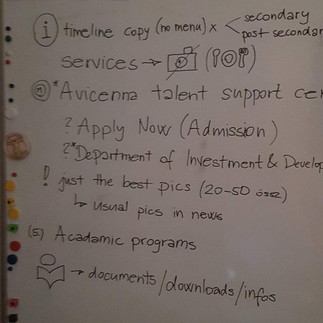 i timeline copy (no menu) x < secondary
post secondar
services →
*Avicenna talent support cen
? Apply Now (Admission)
?*Department of Investment & Develop
! just the best pics (20-50
↳ usual pics in news
(5) Acadamic programs
→ documents/downloads/infos